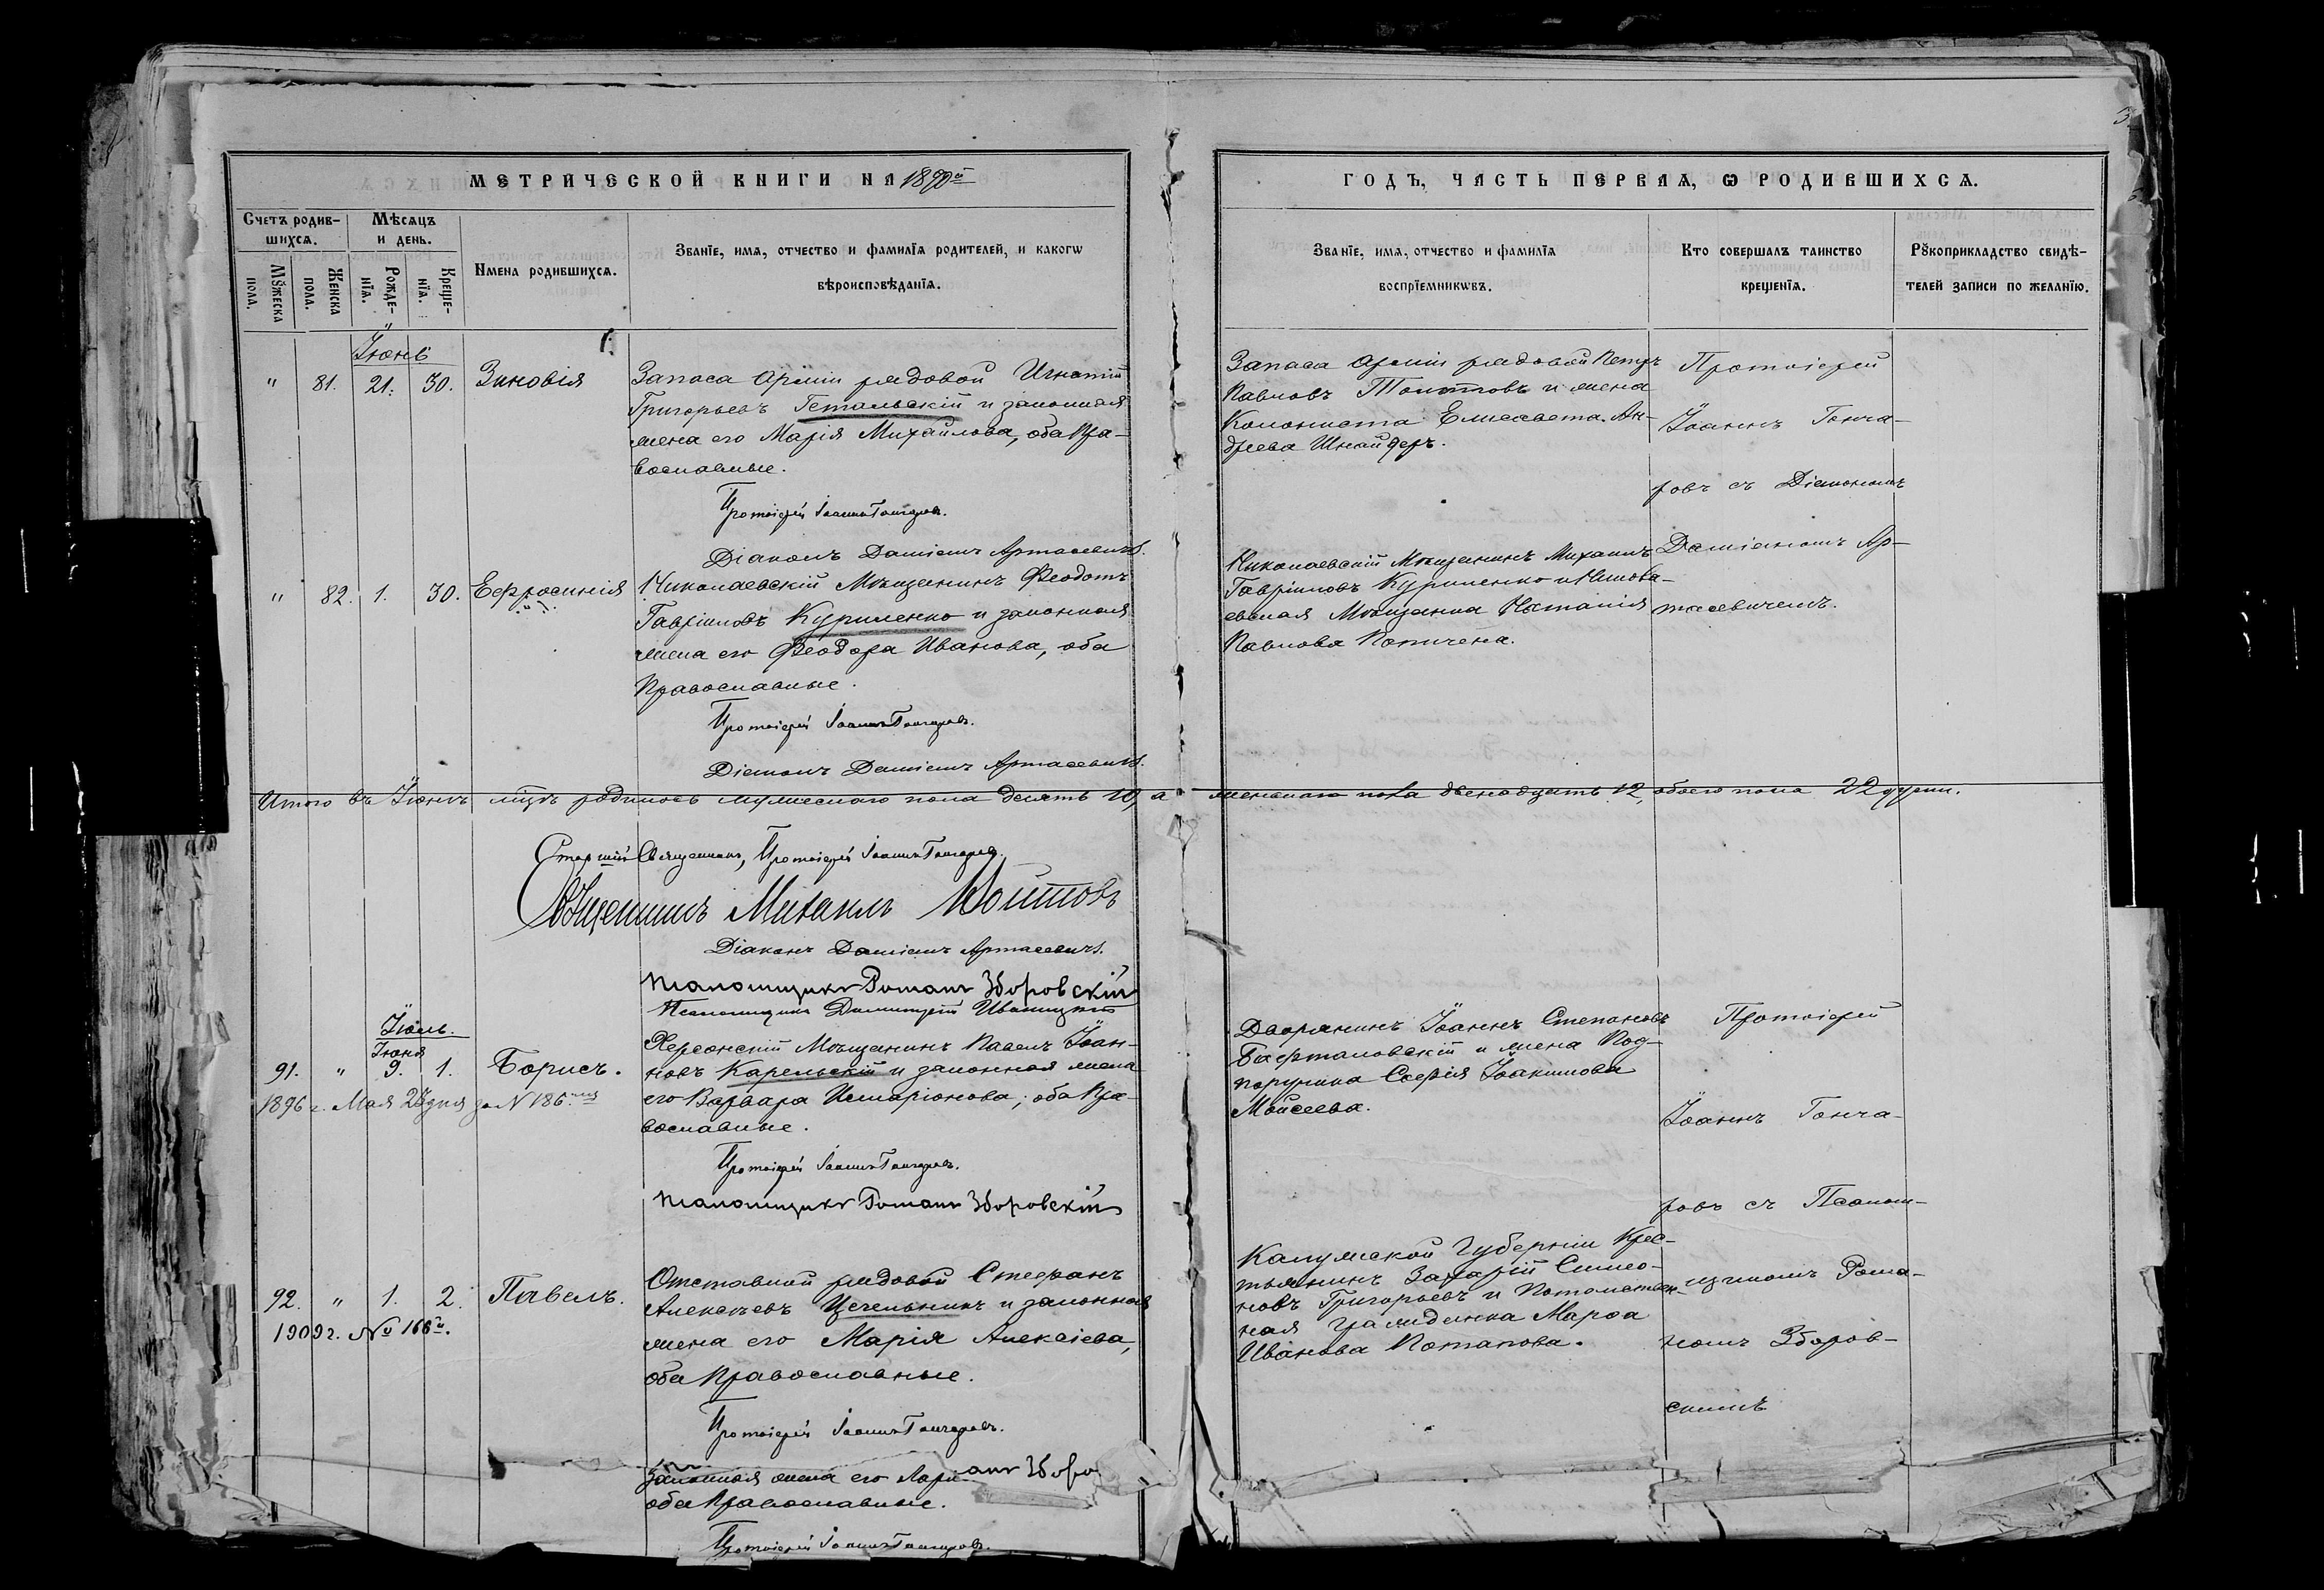 МЕТРИЧЕСКОЙ КНИГИ НА 1890й
ГОДЪ, ЧАСТЬ ПЕРВАЯ, Ѡ РОДИВШИХСЯ.
Счетъ родив-
шихся.
Мѣсяцъ
и день.
Имена родившихся.
Званіе, имя, отчество и фамилія родителей, и какогѡ
вѣроисповѣданія.
Мужеска
пола.
Женска
пола.
Рожде-
нія.
Креще-
нія.
Званіе, имя, отчество и фамилія
воспріемникѡвъ.
Кто совершалъ таинство
крещенія.
Рукоприкладство свидѣ-
телей записи по желанію.
Іюнь
" 81. 21. 30. Зиновія
Запаса Арміи рядовой Игнатій
Григорьевъ Гетальскій и законная
жена его Марія Михайлова, оба Пра-
вославные.
Протоіерей Іоаннъ Гончаровъ.
Діаконъ Даміанъ Артасевичъ.
Запаса Арміи рядовой Петръ
Павловъ и жена
Колониста Елисавета Ан-
дреева Шнайдеръ.
Протоіерей
Іоаннъ Гонча-
ровъ съ Діакономъ
Даміаномъ Ар-
тасевичемъ.
" 82. 1. 30. Ефросинія
Николаевскій Мѣщанинъ Феодотъ
Гавріиловъ Куриленко и законная
жена его Феодора Иванова, оба
Православные.
Протоіерей Іоаннъ Гончаровъ.
Діаконъ Даміанъ Артасевичъ.
Николаевскій Мѣщанинъ Михаилъ
Гавріиловъ Куриленко и Никола-
евская Мѣщанка Наталія
Павлова
Итого въ Іюнѣ мцѣ родилось мужескаго пола десять 10, а женскаго пола двенадцать 12, обоего пола 22 души.
Старшій Священникъ, Протоіерей Іоаннъ Гончаровъ.
Священникъ Михаилъ Войтовъ
Діаконъ Даміанъ Артасевичъ.
Псаломщикъ Романъ Зборовскій
Псаломщикъ Димитрій Иваницкій
Іюль.
Іюня
91. " 9. 1. Борисъ.
1896 г. Мая 28 дня за N 186.
Херсонскій Мѣщанинъ Павелъ Іоан-
новъ Карельскій и законная жена
его Варвара Иларіонова, оба Пра-
вославные.
Протоіерей Іоаннъ Гончаровъ.
Псаломщикъ Романъ Зборовскій
Дворянинъ Іоаннъ Степановъ
и жена Под-
порутчика Софія Іоакимова
Моисеева.
Протоіерей
Іоаннъ Гонча-
ровъ съ Псалом-
щикомъ Рома-
номъ Зборов-
скимъ
92. " 1. 2. Павелъ.
1909 г. №
Отставной рядовой Стефанъ
Алексѣевъ Цечельникъ и законная
жена его Марія Алексіева,
оба Православные.
Протоіерей Іоаннъ Гончаровъ.
Калужской Губерніи Крес-
тьянинъ Захарій Симео-
новъ Григорьевъ и Потомствен-
ная Гражданка Марфа
Иванова Потапова.
Законная жена его
анъ Зборо
оба Православные.
Протоіерей Іоаннъ Гончаровъ.